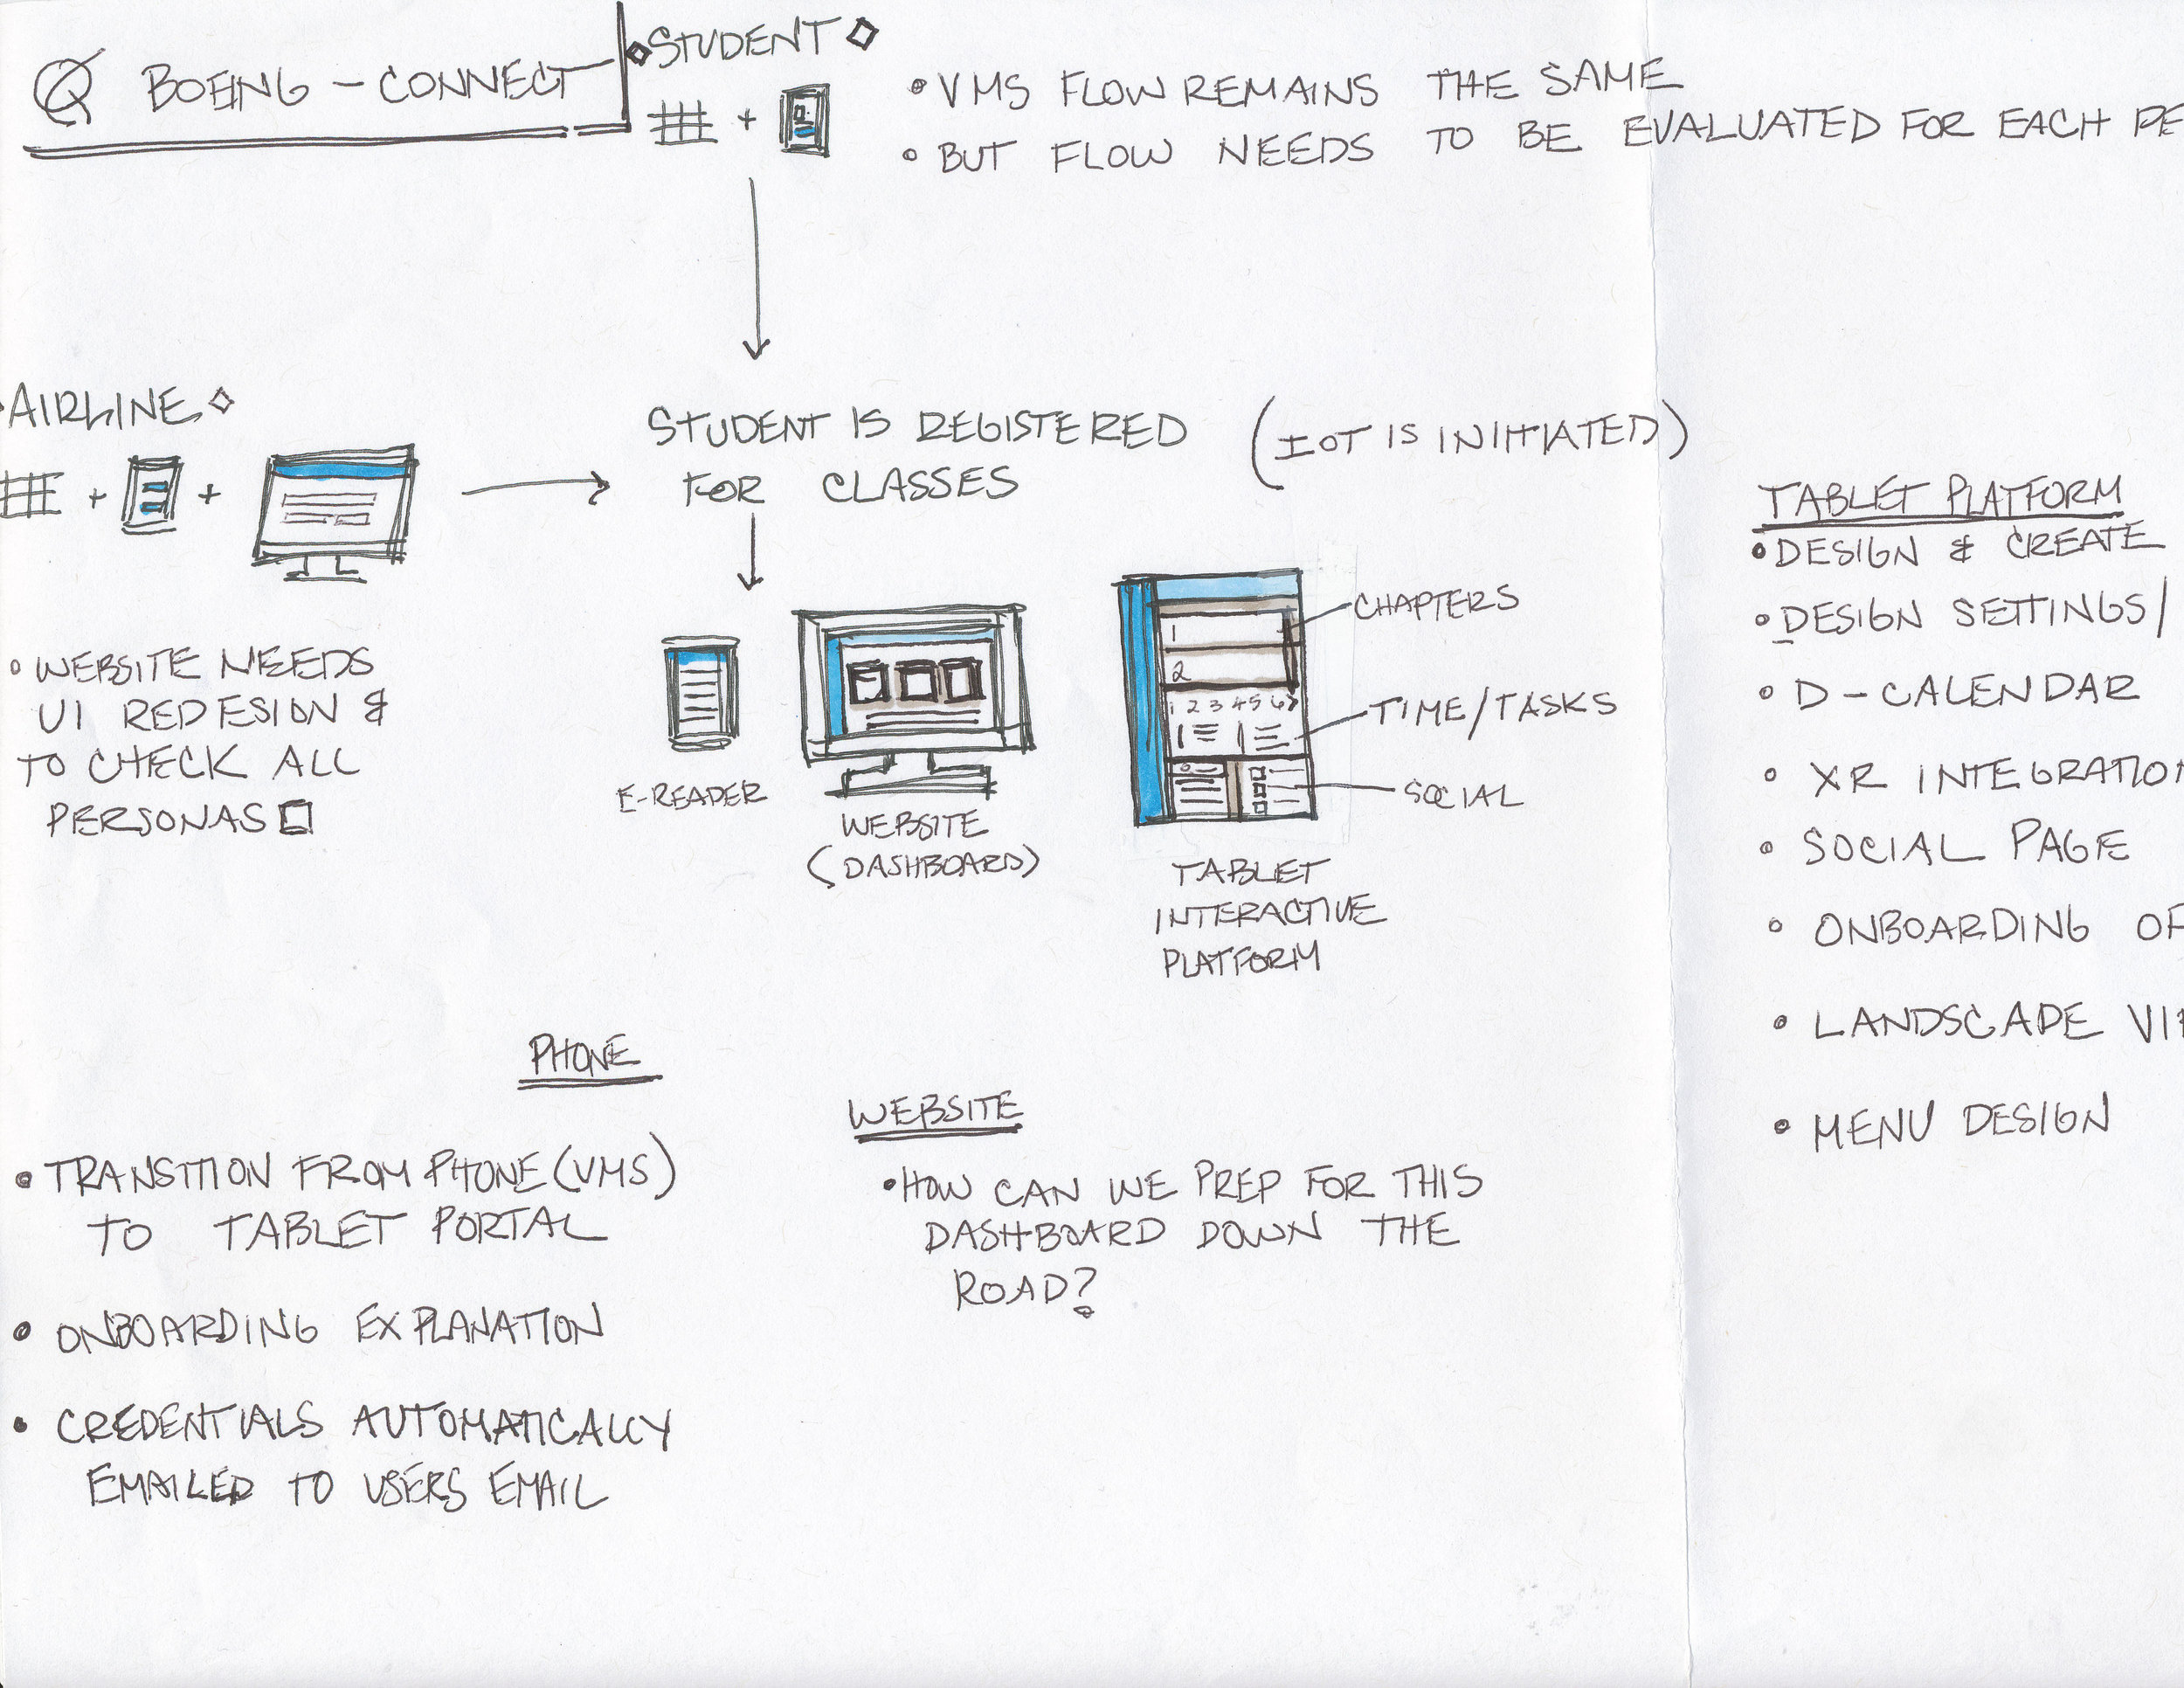 BOEING - CONNECT
STUDENT
• VMS FLOW REMAINS THE SAME
• BUT FLOW NEEDS TO BE EVALUATED FOR EACH PE
AIRLINE
STUDENT IS REGISTERED
FOR CLASSES
(IOT IS INITIATED)
• WEBSITE NEEDS
UI REDESIGN &
TO CHECK ALL
PERSONAS
E-READER
WEBSITE
(DASHBOARD)
1
2
1 2 3 4 5 6 7
CHAPTERS
TIME/TASKS
SOCIAL
TABLET
INTERACTIVE
PLATFORM
TABLET PLATFORM
• DESIGN & CREATE
• DESIGN SETTINGS/
• D - CALENDAR
• XR INTEGRATION
• SOCIAL PAGE
• ONBOARDING OF
• LANDSCAPE VIE
• MENU DESIGN
PHONE
• TRANSITION FROM PHONE (VMS)
TO TABLET PORTAL
• ONBOARDING EXPLANATION
• CREDENTIALS AUTOMATICALLY
EMAILED TO USERS EMAIL
WEBSITE
• HOW CAN WE PREP FOR THIS
DASHBOARD DOWN THE
ROAD?